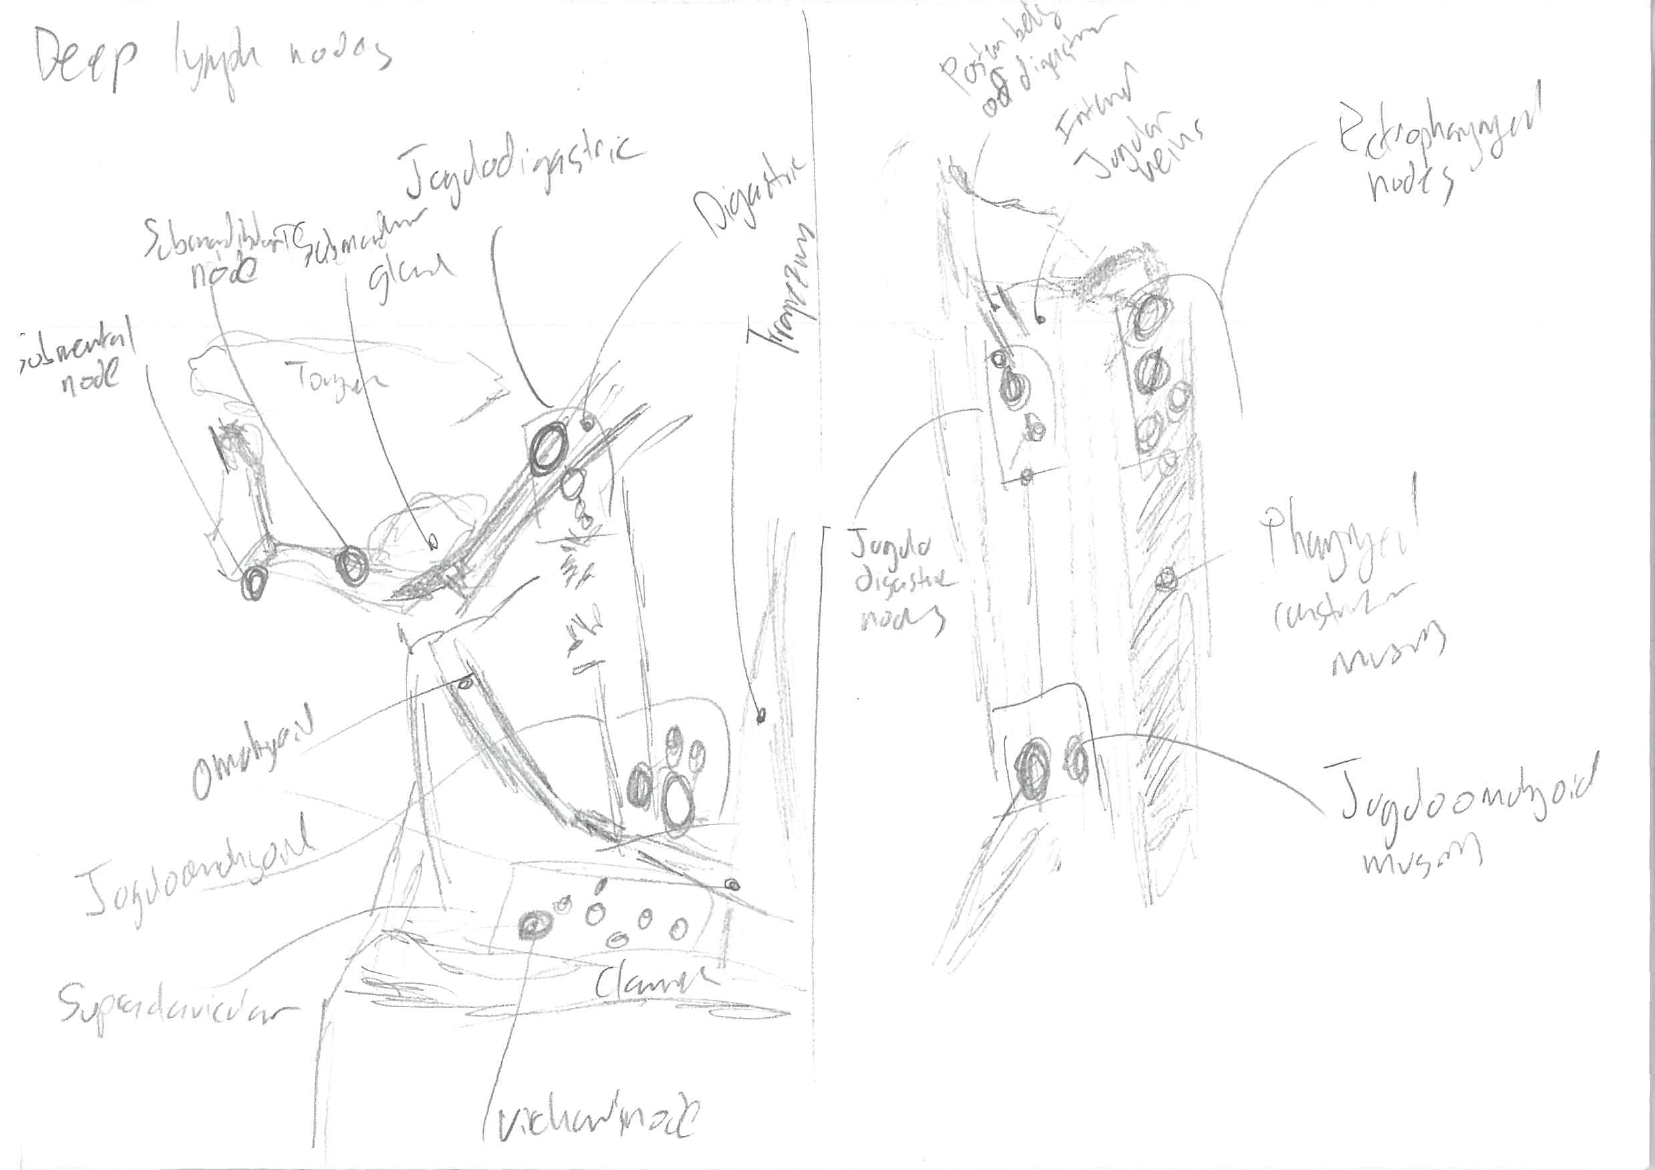 Deep lymph nodes
Jogulodigastric
Submandibular
node
Submandibular
gland
Digastric
Trapezius
Submental
node
Tongue
Omohyoid
Jogulo omohyoid
Supraclavicular
Clavicle
Virchow's node
Posterior belly
of digastric
Internal
Jugular
veins
Retropharyngeal
nodes
Jugulo
digastric
nodes
Pharyngeal
constrictor
muscles
Juguloomohyoid